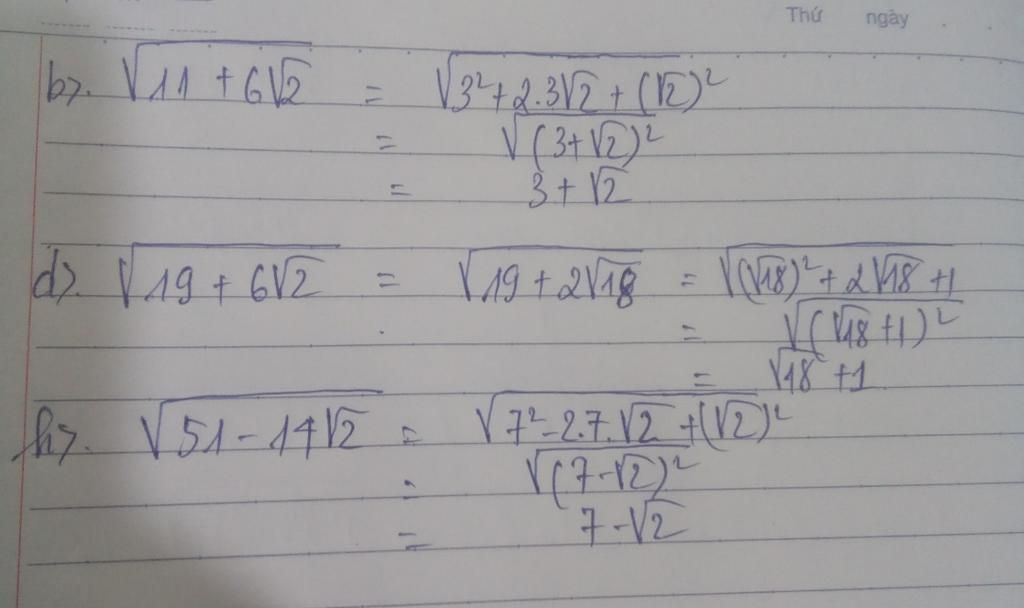 Thứ ngày
b>. √(11 + 6√2) = √(3² + 2.3√2 + (√2)²)
= √((3+√2)²)
= 3 + √2
d>. √(19 + 6√2) = √(19 + 2√18) = √((√18)² + 2√18 + 1)
= √((√18 + 1)²)
= √18 + 1
h>. √(51 - 14√2) = √(7² - 2.7.√2 + (√2)²)
= √((7 - √2)²)
= 7 - √2